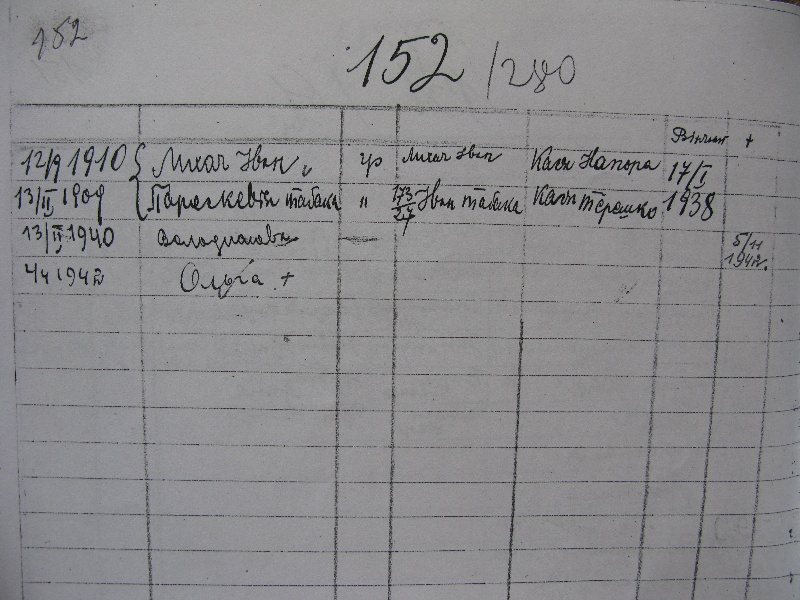 152
152 /280
Вінчані +
12/9 1910 { Лихач Іван гр Лихач Іван Кася Напора 17/I
13/II 1909 Параскевія Табака " 173/27 Іван Табака Кася Терешко 1938
13/II 1940 5/11 1942.
4/4 1942 Ольга +